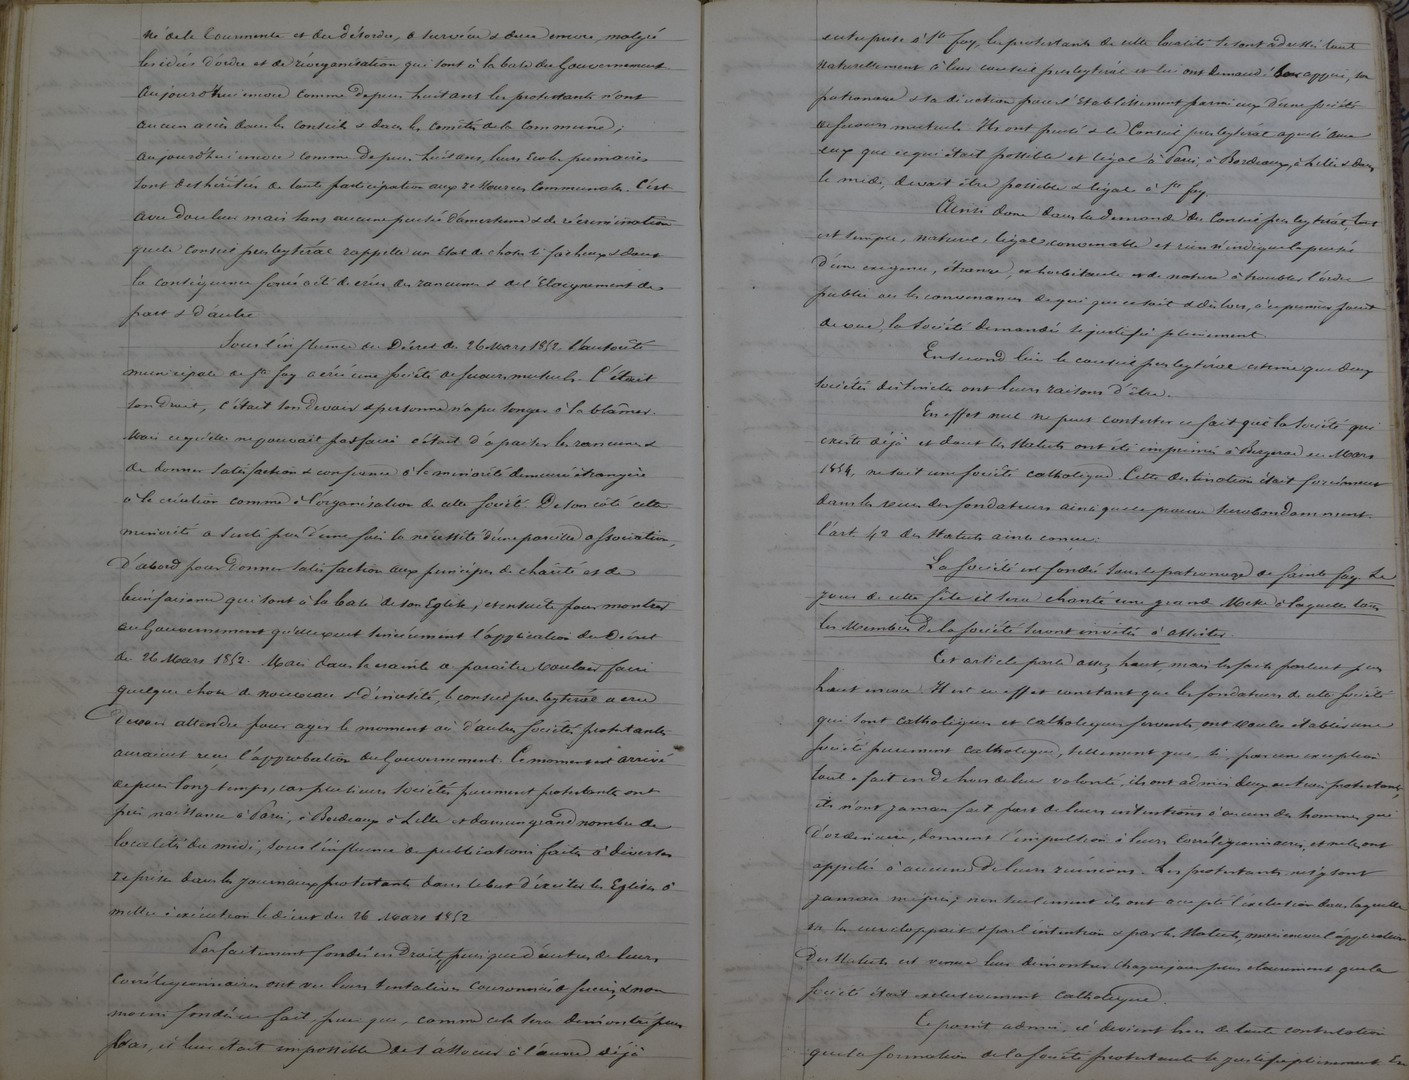 né de la tourmente et du désordre, a survécu & dure encore, malgré
les idées d'ordre et de réorganisation qui sont à la base du Gouvernement
Aujourd'hui encore comme depuis huit ans les protestants n'ont
aucun accès dans les conseils & dans les comités de la Commune ;
aujourd'hui encore comme depuis huit ans, leurs Ecoles primaires
sont deshéritées de toute participation aux ressources Communales. C'est
avec douleur mais sans aucune pensée d'amertume & de récrimination
que le Conseil presbytéral rappelle un Etat de choses si facheux & dont
la conséquence forcée a été de créer des rancunes & de l'Eloignement de
part & d'autre
Sous l'influence du Décret du 26 Mars 1852 l'autorité
municipale de Ste foy a créé une Société de secours mutuels. C'était
son droit, c'était son devoir & personne n'a pu songer à la blâmer.
Mais ce qu'elle ne pouvait pas faire c'était d'apaiser les rancunes &
de donner satisfaction & confiance à la minorité demeurée étrangère
à la création comme à l'organisation de cette Société. De son côté cette
minorité a senti plus d'une fois la nécessité d'une pareille association,
D'abord pour Donner satisfaction aux principes de charité et de
bienfaisance qui sont à la base de son Eglise, et ensuite pour montrer
au Gouvernement qu'elle veut sincèrement l'application du Décret
du 26 Mars 1852. Mais dans la crainte de paraître vouloir faire
quelque chose de nouveau & d'inusité, le conseil presbytéral a cru
devoir attendre pour agir le moment où d'autres sociétés protestantes
auraient reçu l'approbation du Gouvernement. Ce moment est arrivé
depuis long temps, car plusieurs Sociétés purement protestantes ont
pris naissance à Paris, à Bordeaux à Lille et dans un grand nombre de
localités du midi, sous l'influence de publications faites à diverses
reprises dans les journaux protestants dans le but d'exciter les Eglises à
mettre à exécution le décret du 26 Mars 1852
Parfaitement fondés en Droit, puisque d'autres de leurs
Coréligionnaires ont vu leurs tentatives couronnées de succès, & non
moins fondés en fait, puis que, comme cela sera démontré plus
bas, il leur était impossible de s'associer à l'œuvre déjà
entreprise à Ste foy, les protestants de cette localité se sont adressés tout
naturellement à leur conseil presbytéral et lui ont demandé son appui, son
patronage & sa direction pour l'Etablissement parmi eux d'une Société
de secours mutuels. Ils ont pensé & le Conseil presbytéral a pensé avec
eux que ce qui était possible et légal à Paris, à Bordeaux, à Lille & dans
le midi, devait être possible & légal à Ste foy.
Ainsi donc dans la demande du Conseil presbytéral, tout
est simple, naturel, légal, convenable et rien n'indique la pensée
d'une exigence, étrange, exhorbitante et de nature à troubler l'ordre
public ou les convenances de qui que ce soit & dès lors, à ce premier point
de vue, la Société demandée se justifie pleinement
En second lieu le conseil presbytéral estime que deux
sociétés distinctes ont leurs raisons d'être.
En effet nul ne peut contester ce fait que la Société qui
existe déjà et dont les Statuts ont été imprimés à Bergerac en Mars
1854, ne soit une Société catholique. Cette destination était forcément
dans les vues des fondateurs ainsi que le prouve surabondamment
l'art 42 des Statuts ainsi conçu:
La Société est fondée sous le patronage de Sainte foy. Le
jour de cette fête il sera chanté une grand Messe à laquelle tous
les Membres de la Société seront invités à assister.
Cet article parle assez haut, mais les faits parlent plus
haut encore. Il est en effet constant que les fondateurs de cette Société
qui sont catholiques et catholiques fervents, ont voulu établir une
Société purement catholique, tellement que, si par une exception
tout à fait en dehors de leur volonté, ils ont admis deux ou trois protestants,
ils n'ont jamais fait part de leurs intentions à aucun des hommes qui
d'ordinaire, donnent l'impulsion à leurs Coréligionnaires, et ne les ont
appelés à aucune de leurs réunions. Les protestants ne s'y sont
jamais mépris; non seulement ils ont accepté l'exclusion dans laquelle
on les enveloppait & par l'intention & par les Statuts, mais encore l'application
Des Statuts est venue leur démontrer chaque jour plus clairement que la
Société était exclusivement catholique.
Ce point admis, il devient hors de toute contestation
que la formation de la Société protestante se justifie pleinement. En